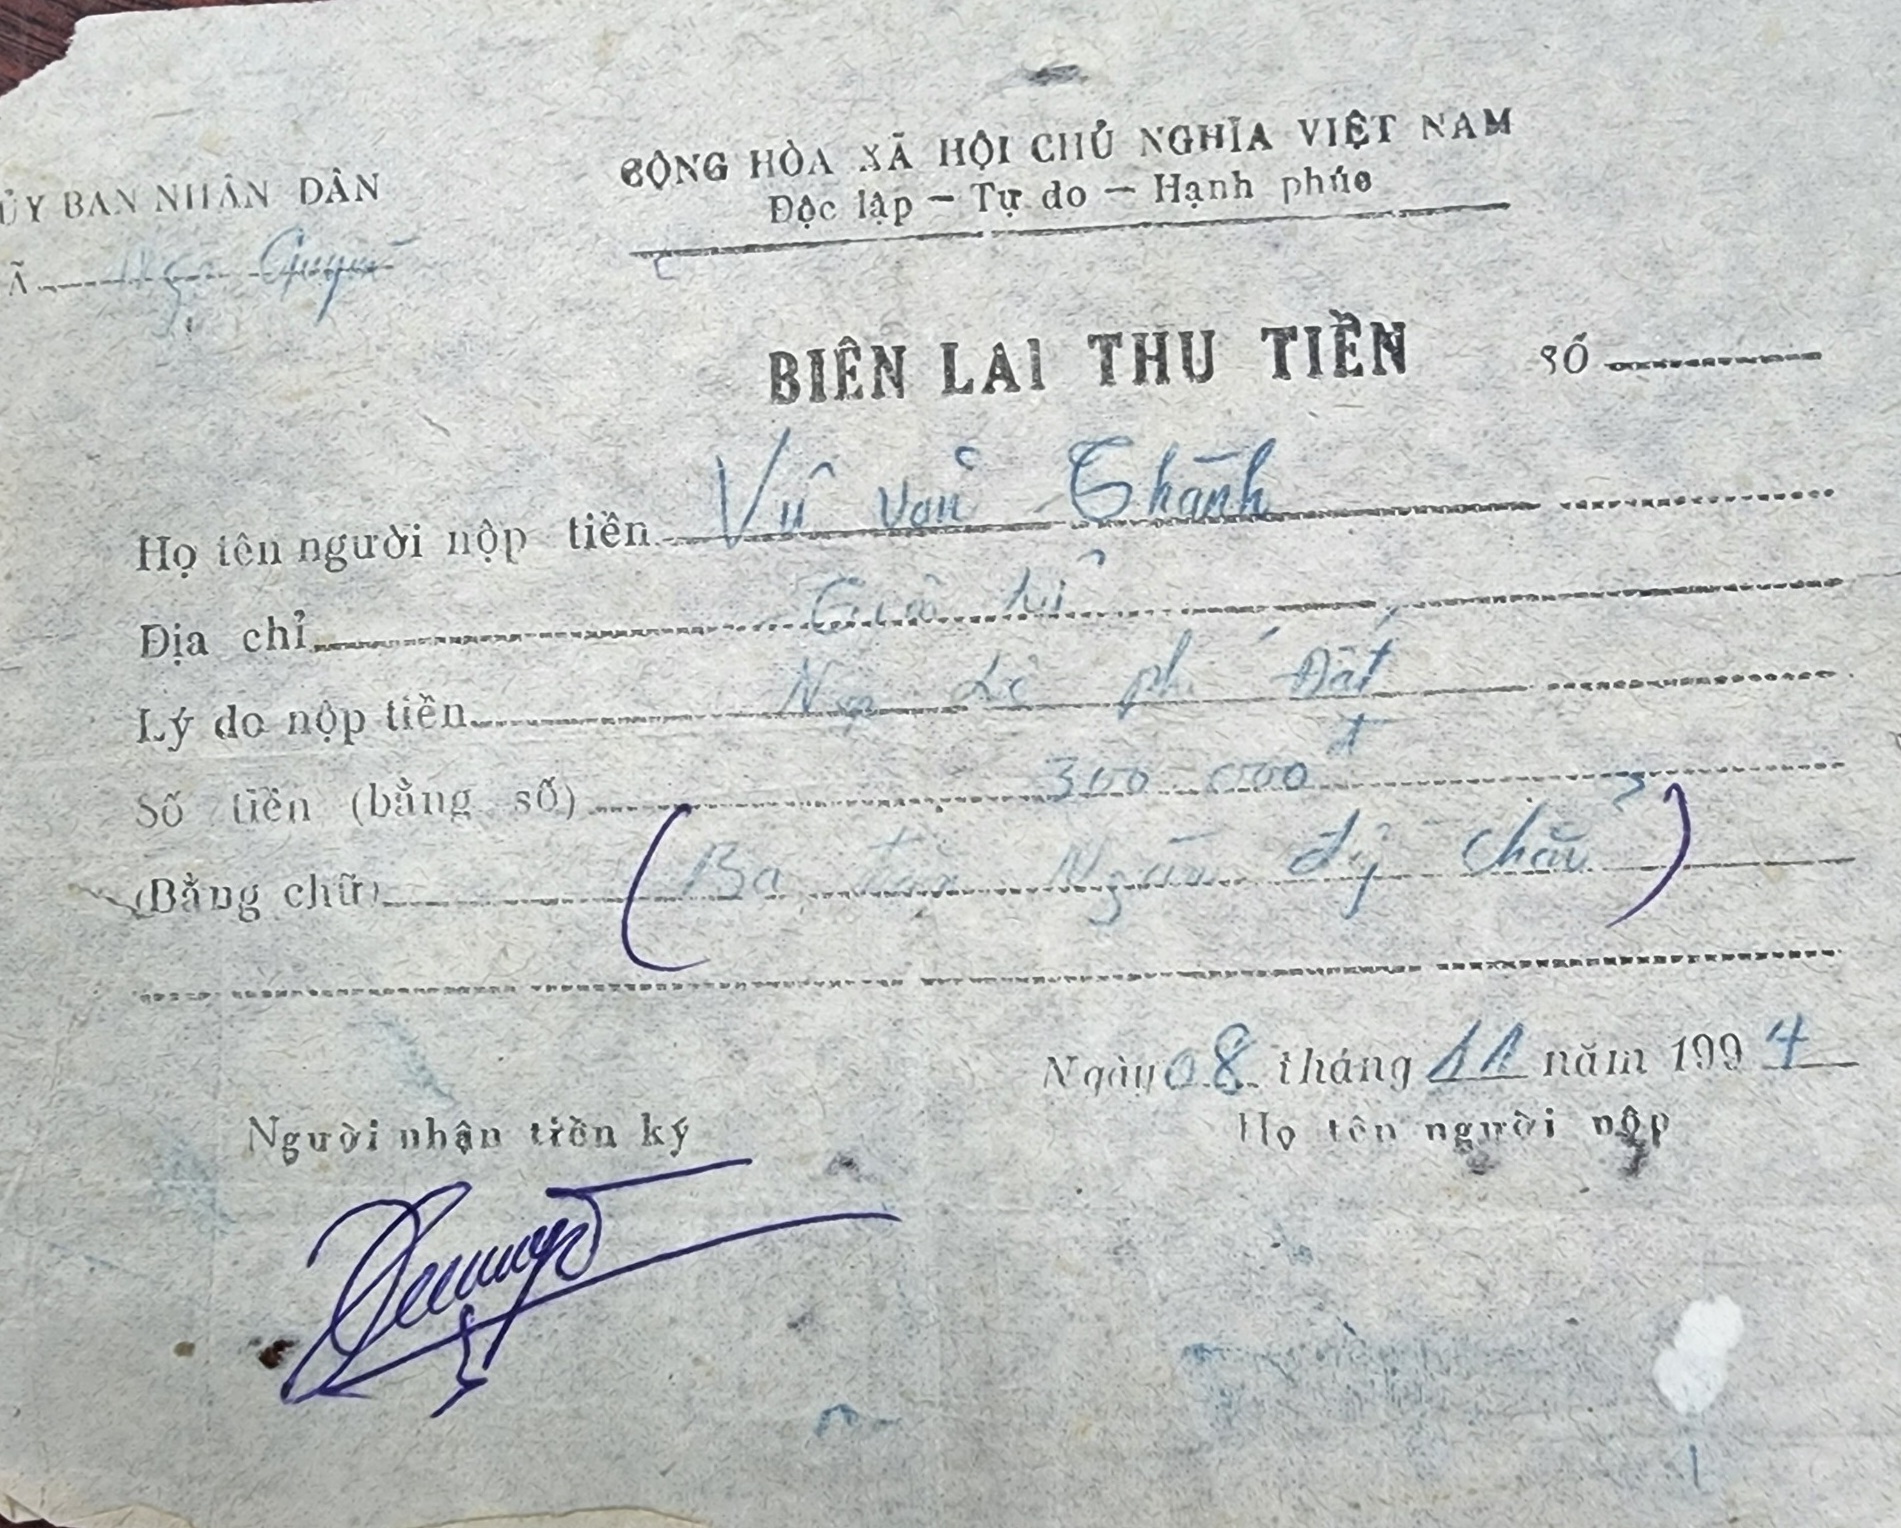 CỘNG HÒA XÃ HỘI CHỦ NGHĨA VIỆT NAM
Độc lập - Tự do - Hạnh phúc
ỦY BAN NHÂN DÂN
Ã
BIÊN LAI THU TIỀN
SỐ
Họ tên người nộp tiền Vũ Văn Thành
Địa chỉ
Lý do nộp tiền Nộp Lệ phí Đất
Số tiền (bằng số) 300 000đ
(Bằng chữ) (Ba trăm Ngàn đ chẵn)
Ngày 08 tháng 11 năm 1994
Người nhận tiền ký
Họ tên người nộp